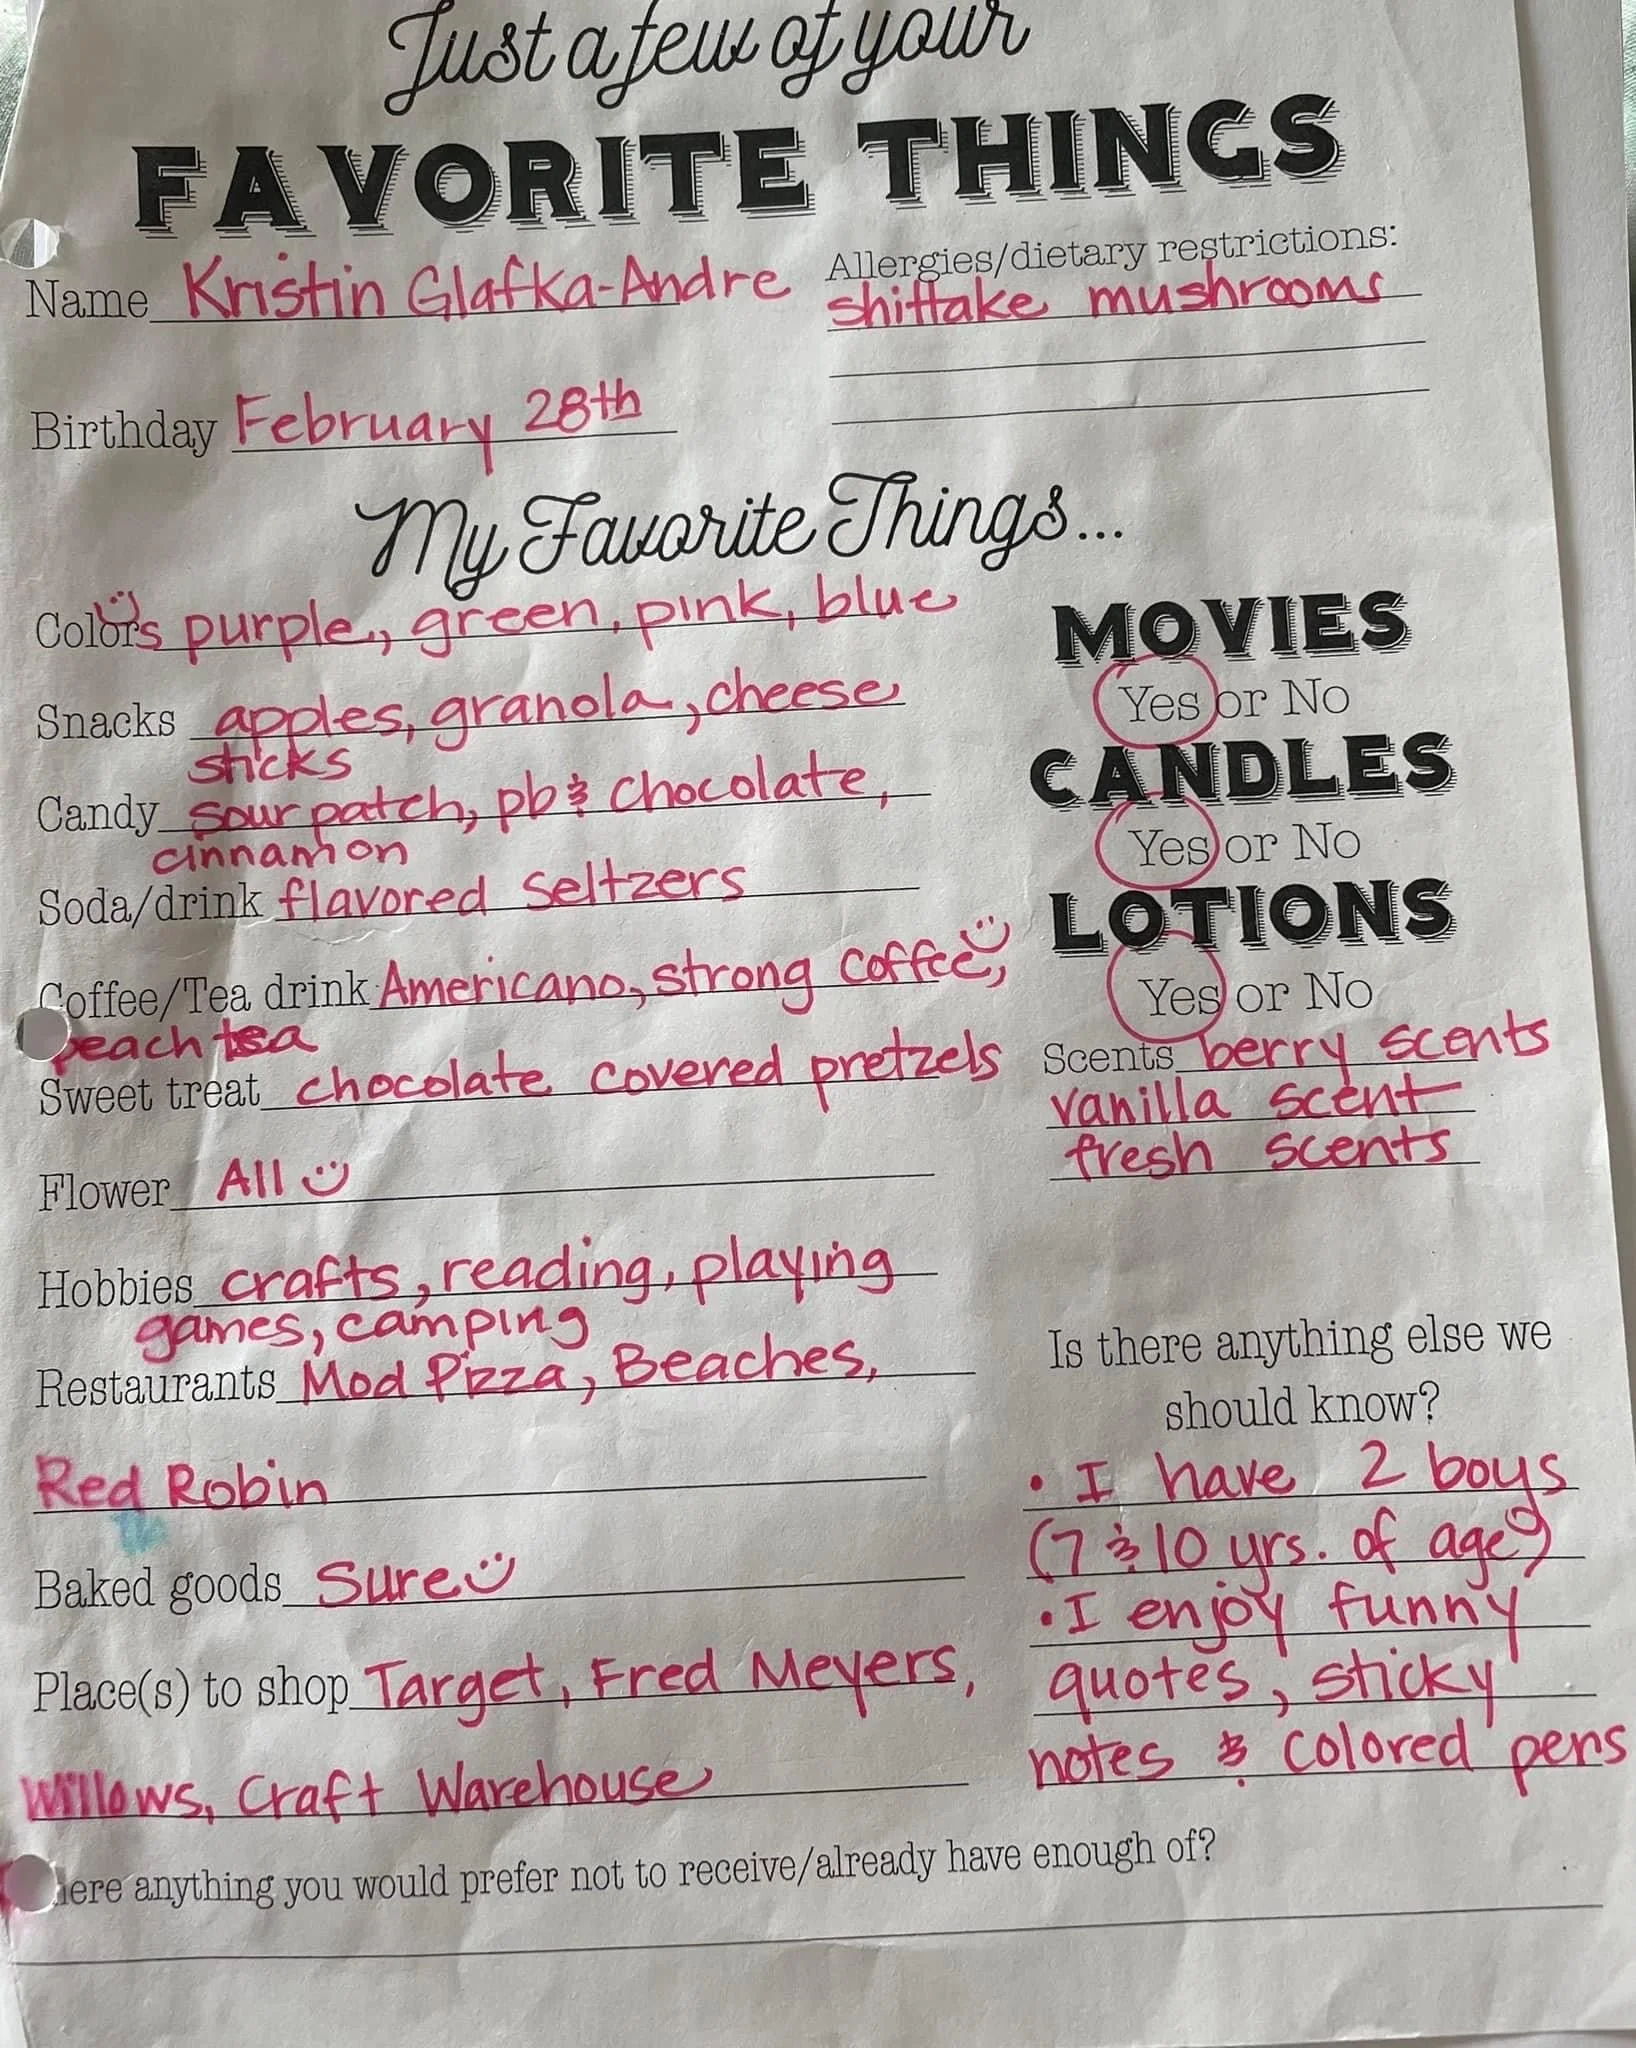 Just a few of your
FAVORITE THINGS
Name Kristin Glafka-Andre
Allergies/dietary restrictions:
shittake mushrooms
Birthday February 28th
My Favorite Things...
Colors purple, green, pink, blue
Snacks apples, granola, cheese
sticks
Candy sour patch, pb & chocolate,
cinnamon
Soda/drink flavored seltzers
Coffee/Tea drink Americano, strong coffee,
peach tea
Sweet treat chocolate covered pretzels
Flower All
Hobbies crafts, reading, playing
games, camping
Restaurants Mod Pizza, Beaches,
Red Robin
Baked goods Sure
Place(s) to shop Target, Fred Meyers,
Willows, Craft Warehouse
MOVIES
Yes or No
CANDLES
Yes or No
LOTIONS
Yes or No
Scents berry scents
vanilla scent
fresh scents
Is there anything else we
should know?
• I have 2 boys
(7 & 10 yrs. of age)
• I enjoy funny
quotes, sticky
notes & colored pens
here anything you would prefer not to receive/already have enough of?